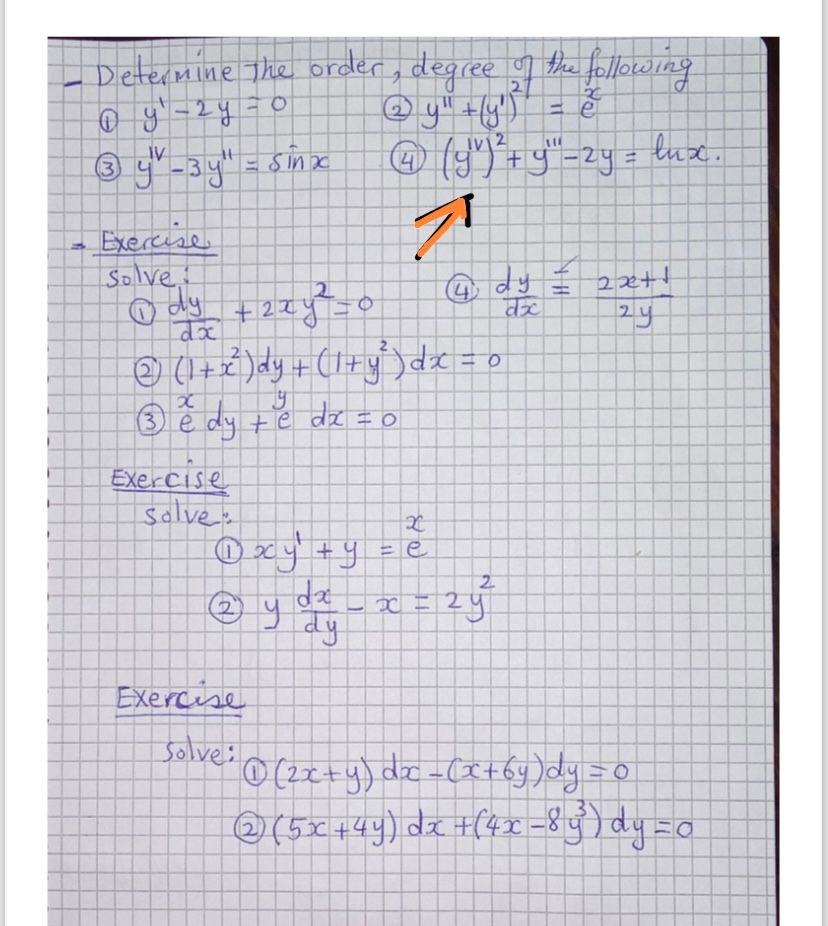 - Determine The order, degree of the following
① y' - 2y = 0 ② y'' + (y')² = eˣ
③ yᴵⱽ - 3y'' = sin x ④ (yᴵⱽ)² + y''' - 2y = ln x.
- Exercise
solve:
① dy/dx + 2xy² = 0 ④ dy/dx = (2x+1)/2y
② (1+x²)dy + (1+y²)dx = 0
③ eˣ dy + eʸ dx = 0
Exercise
solve:
① xy' + y = eˣ
② y dx/dy - x = 2y²
Exercise
solve: ① (2x+y) dx - (x+6y)dy = 0
② (5x+4y) dx + (4x-8y³) dy = 0